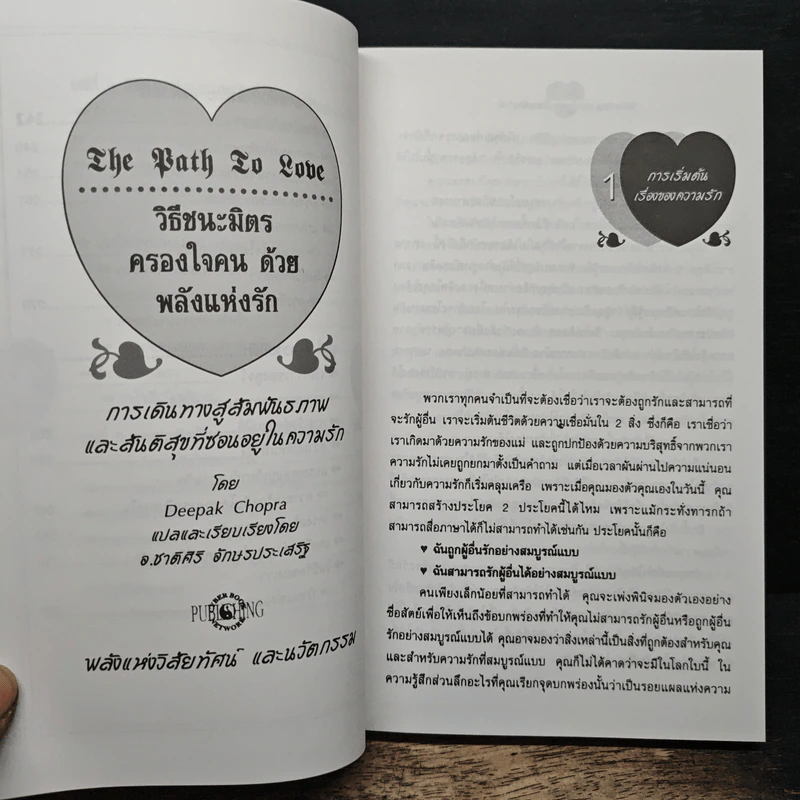 The Path To Love
วิธีชนะมิตร
ครองใจคน ด้วย
พลังแห่งรัก
การเดินทางสู่สัมพันธภาพ
และสันติสุขที่ซ่อนอยู่ในความรัก
โดย
Deepak Chopra
แปลและเรียบเรียงโดย
อ.ชาติศิริ อักษรประเสริฐ
PUBLISHING
พลังแห่งวิสัยทัศน์ และนวัตกรรม
1
การเริ่มต้น
เรื่องของความรัก
พวกเราทุกคนจำเป็นที่จะต้องเชื่อว่าเราจะต้องถูกรักและสามารถที่
จะรักผู้อื่น เราจะเริ่มต้นชีวิตด้วยความเชื่อมั่นใน 2 สิ่ง ซึ่งก็คือ เราเชื่อว่า
เราเกิดมาด้วยความรักของแม่ และถูกปกป้องด้วยความบริสุทธิ์จากพวกเรา
ความรักไม่เคยถูกยกมาตั้งเป็นคำถาม แต่เมื่อเวลาผันผ่านไปความแน่นอน
เกี่ยวกับความรักก็เริ่มคลุมเครือ เพราะเมื่อคุณมองตัวคุณเองในวันนี้ คุณ
สามารถสร้างประโยค 2 ประโยคนี้ได้ไหม เพราะแม้กระทั่งทารกถ้า
สามารถสื่อภาษาได้ก็ไม่สามารถทำได้เช่นกัน ประโยคนั้นก็คือ
♥ ฉันถูกผู้อื่นรักอย่างสมบูรณ์แบบ
♥ ฉันสามารถรักผู้อื่นได้อย่างสมบูรณ์แบบ
คนเพียงเล็กน้อยที่สามารถทำได้ คุณจะเพ่งพินิจมองตัวเองอย่าง
ซื่อสัตย์เพื่อให้เห็นถึงข้อบกพร่องที่ทำให้คุณไม่สามารถรักผู้อื่นหรือถูกผู้อื่น
รักอย่างสมบูรณ์แบบได้ คุณอาจมองว่าสิ่งเหล่านี้เป็นสิ่งที่ถูกต้องสำหรับคุณ
และสำหรับความรักที่สมบูรณ์แบบ คุณก็ไม่ได้คาดว่าจะมีในโลกใบนี้ ใน
ความรู้สึกส่วนลึกอะไรที่คุณเรียกจุดบกพร่องนั้นว่าเป็นรอยแผลแห่งความ